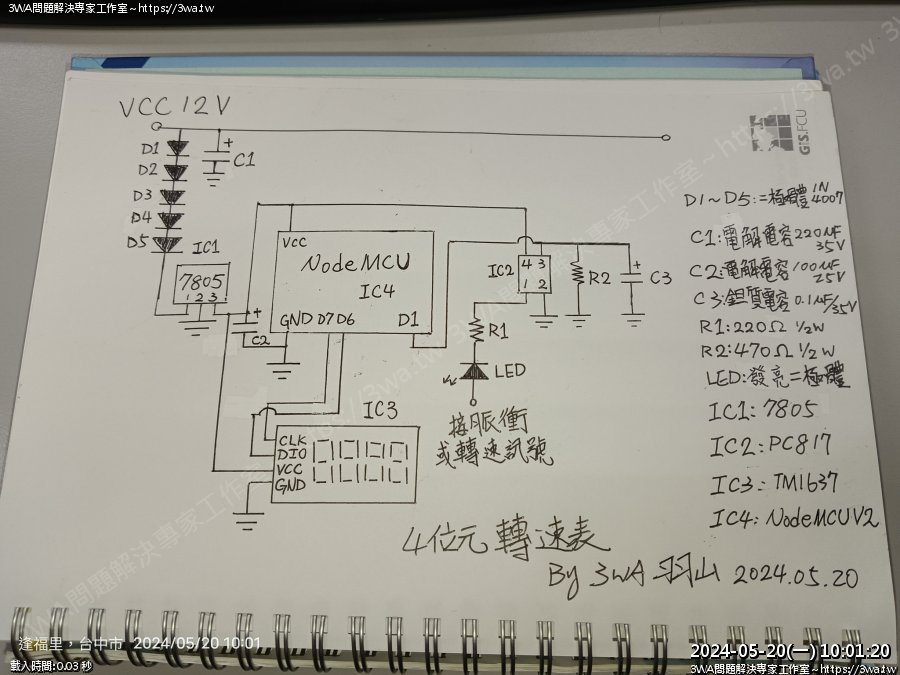 3WA問題解決專家工作室~https://3wa.tw
VCC 12V
GiS.FCU
D1
D2
D3
D4
D5
C1
IC1
7805
1 2 3
C2
VCC
NodeMCU
IC4
GND D7 D6 D1
IC2
4 3
1 2
R1
R2
C3
LED
接脈衝
或轉速訊號
IC3
CLK
DIO
VCC
GND
D1~D5:二極體 1N4007
C1:電解電容 220uF 35V
C2:電解電容 100uF 25V
C3:鉭質電容 0.1uF/35V
R1:220Ω 1/2W
R2:470Ω 1/2W
LED:發亮二極體
IC1:7805
IC2:PC817
IC3:TM1637
IC4:NodeMCUV2
4位元轉速表
By 3WA 羽山 2024.05.20
逢福里,台中市 2024/05/20 10:01
載入時間:0.03 秒
2024-05-20(一) 10:01:20
3WA問題解決專家工作室~https://3wa.tw